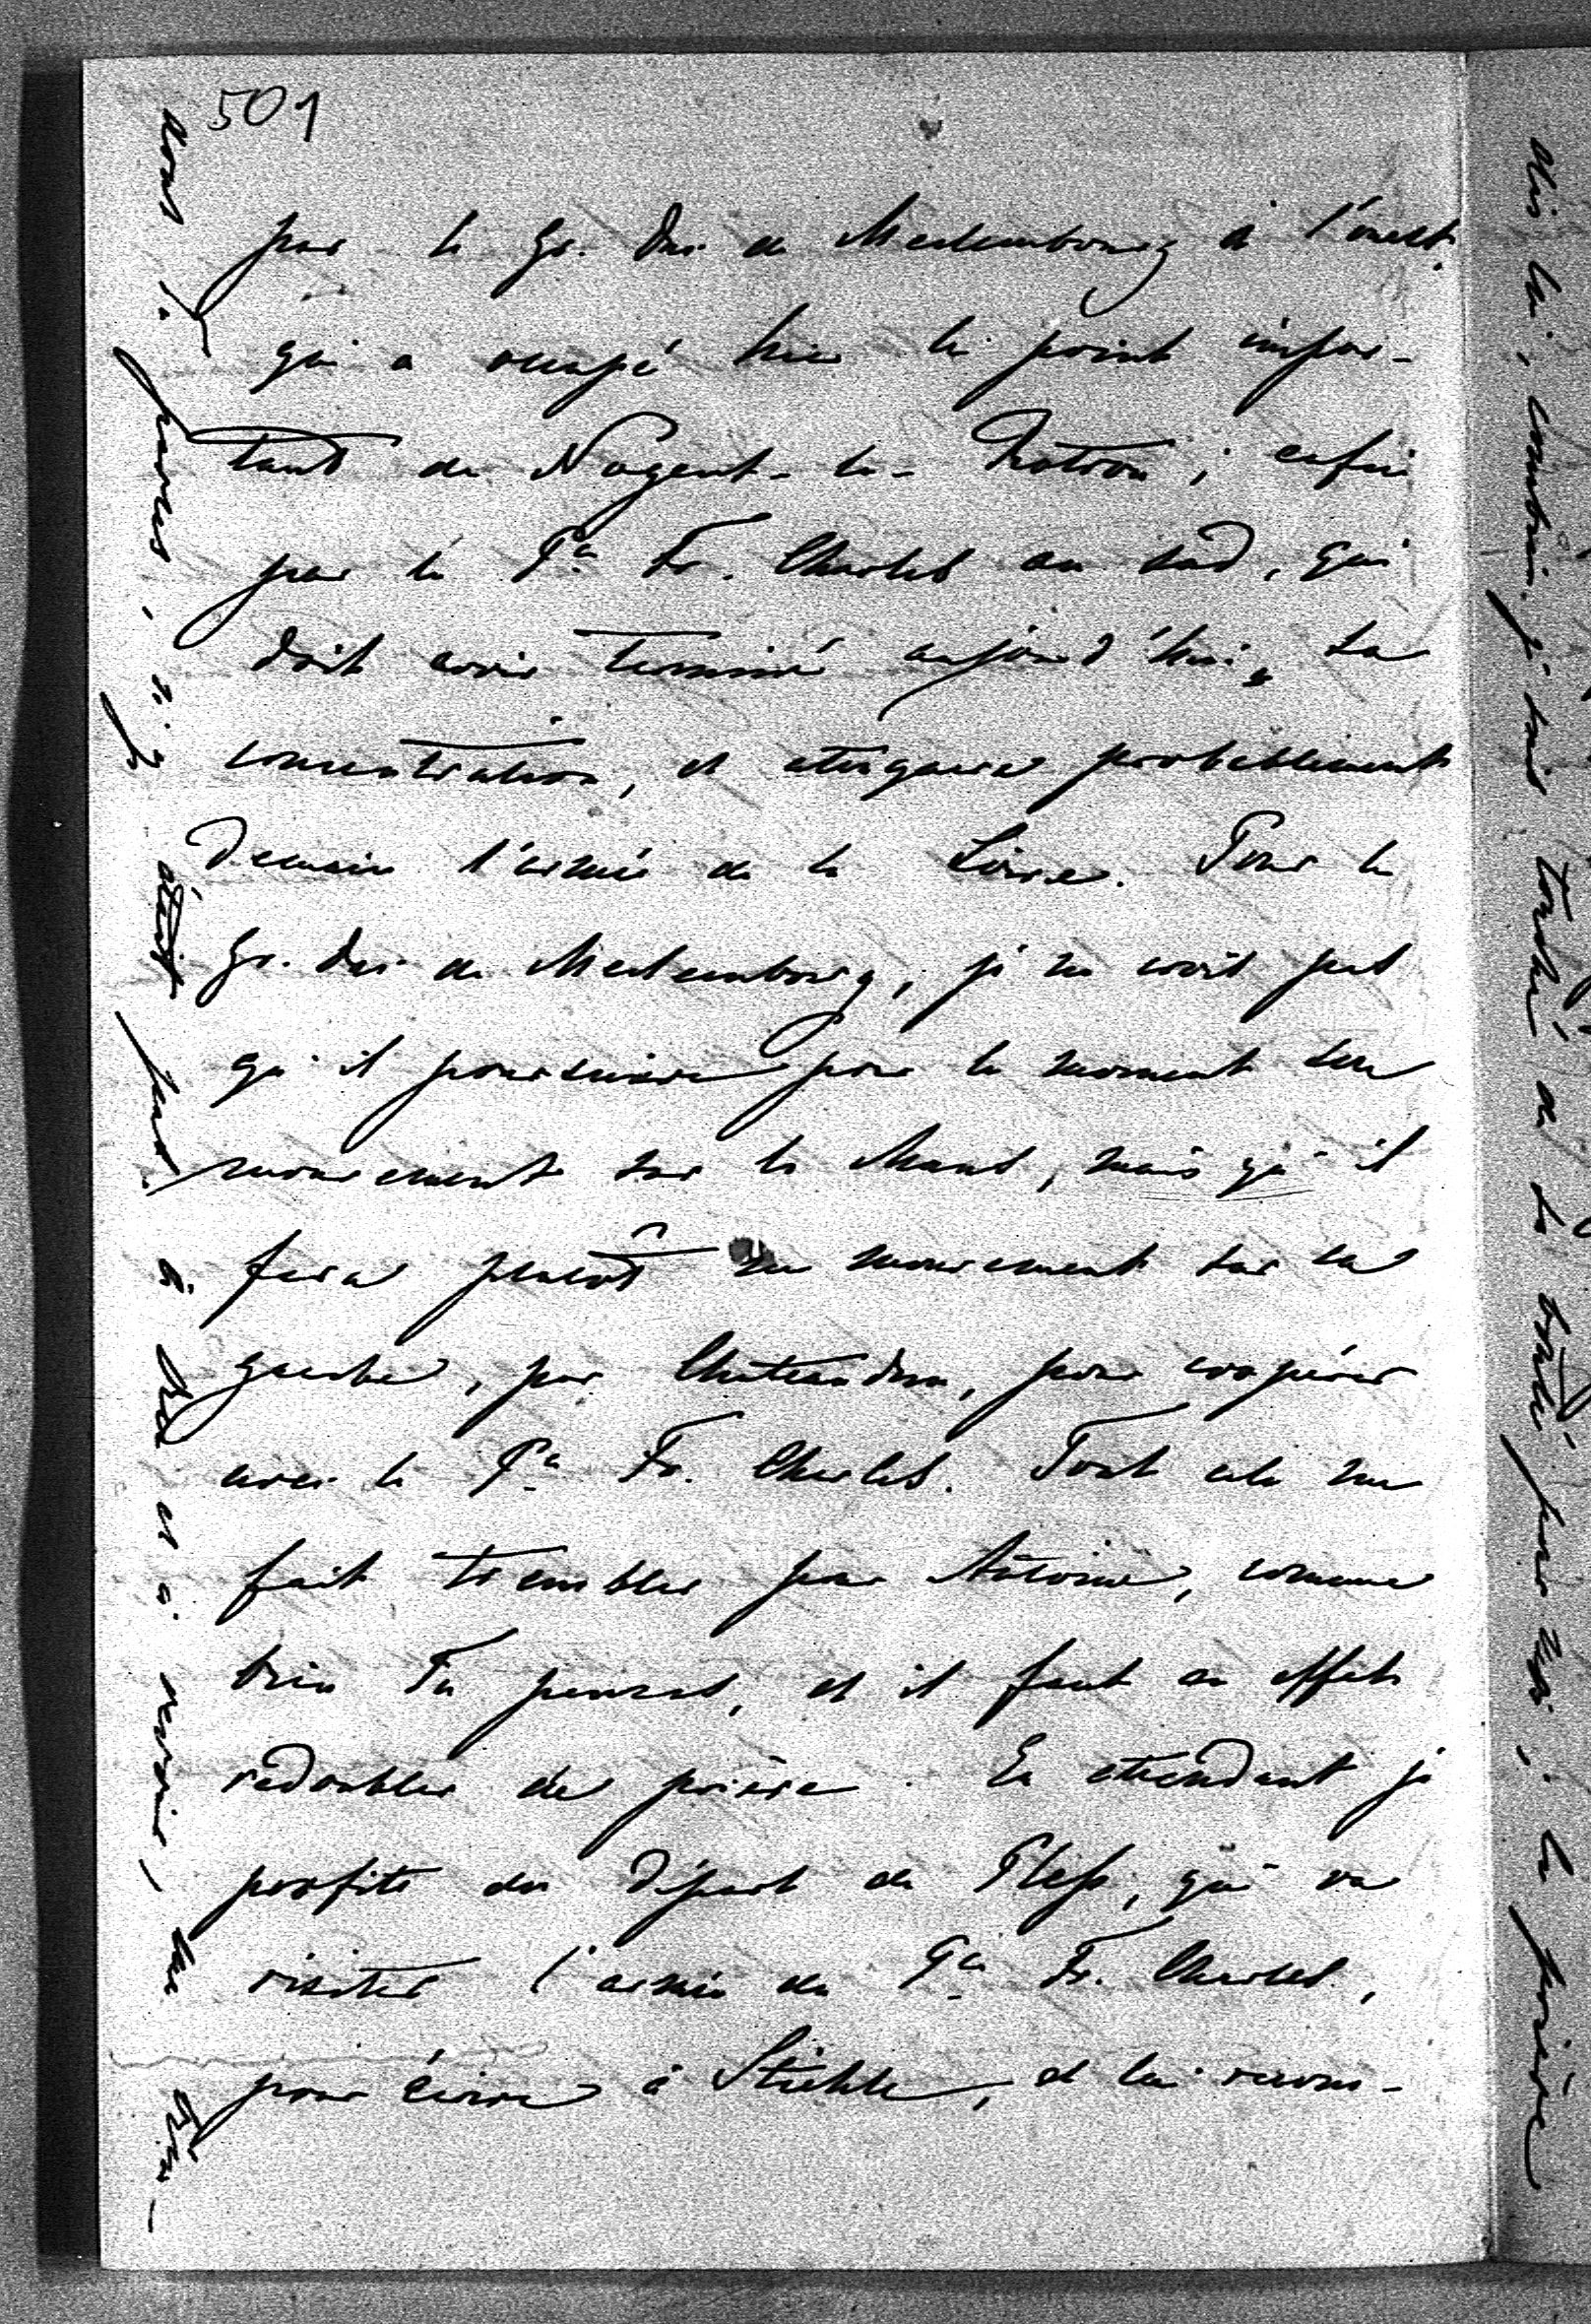 501
par le Gr. Duc de Meclembourg à l'ouest,
qui a occupé hier le point impor-
tant de Nogent-le-Rotrou; enfin
par le Pce Fr. Charles au sud, qui
doit avoir terminé aujourd'hui sa
concentration, et attaquera probablement
demain l'armée de la Loire. Pour le
Gr. Duc de Meclembourg, je ne crois pas
qu'il poursuivra pour le moment son
mouvement sur le Mans, mais qu'il
fera plutôt un mouvement sur sa
gauche, par Chateaudun, pour coopérer
avec le Pce Fr. Charles. Tout cela me
fait trembler pour Antoine, comme
bien Tu penses, et il faut en effet
redoubler de prière. En attendant je
profite du départ de Pless, qui va
visiter l'armée du Pce Fr. Charles,
pour écrire à Stiehle, et lui recom-
paroles, n'y étant pas
à
lui, combien je suis touché de la bonté pour moi, la prière